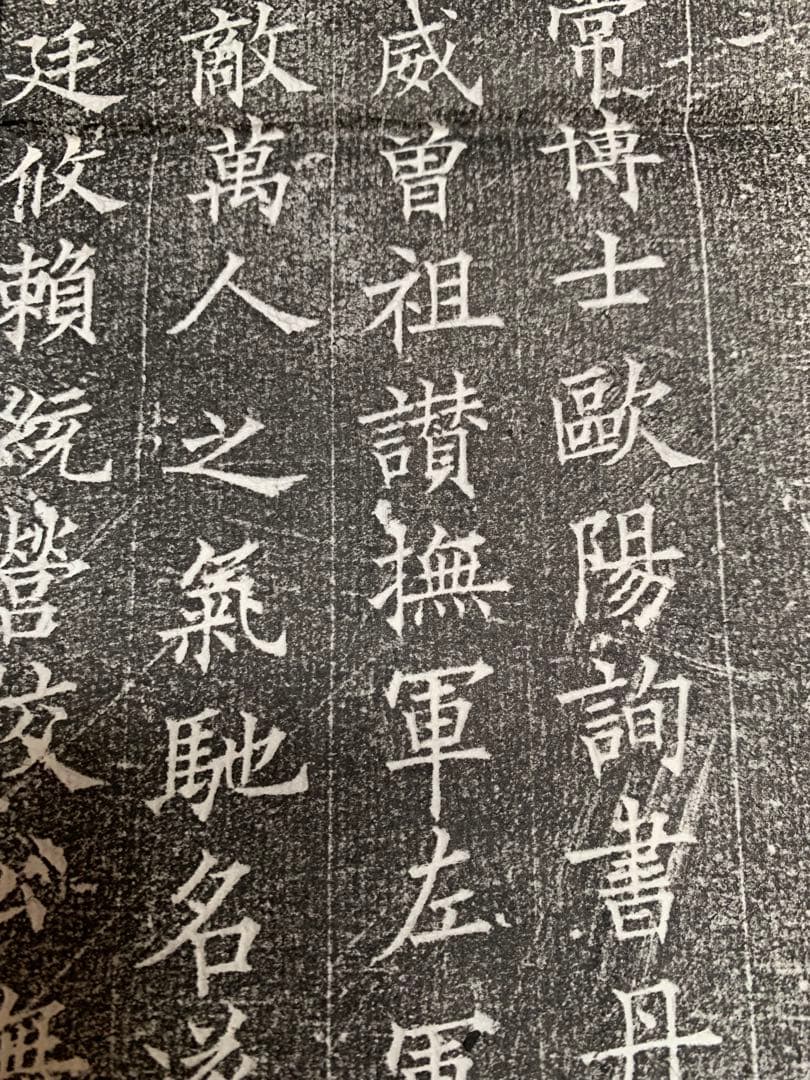 常博士歐陽詢書丹
威曾祖讃撫軍左軍
敵萬人之氣馳名
廷攸賴營校